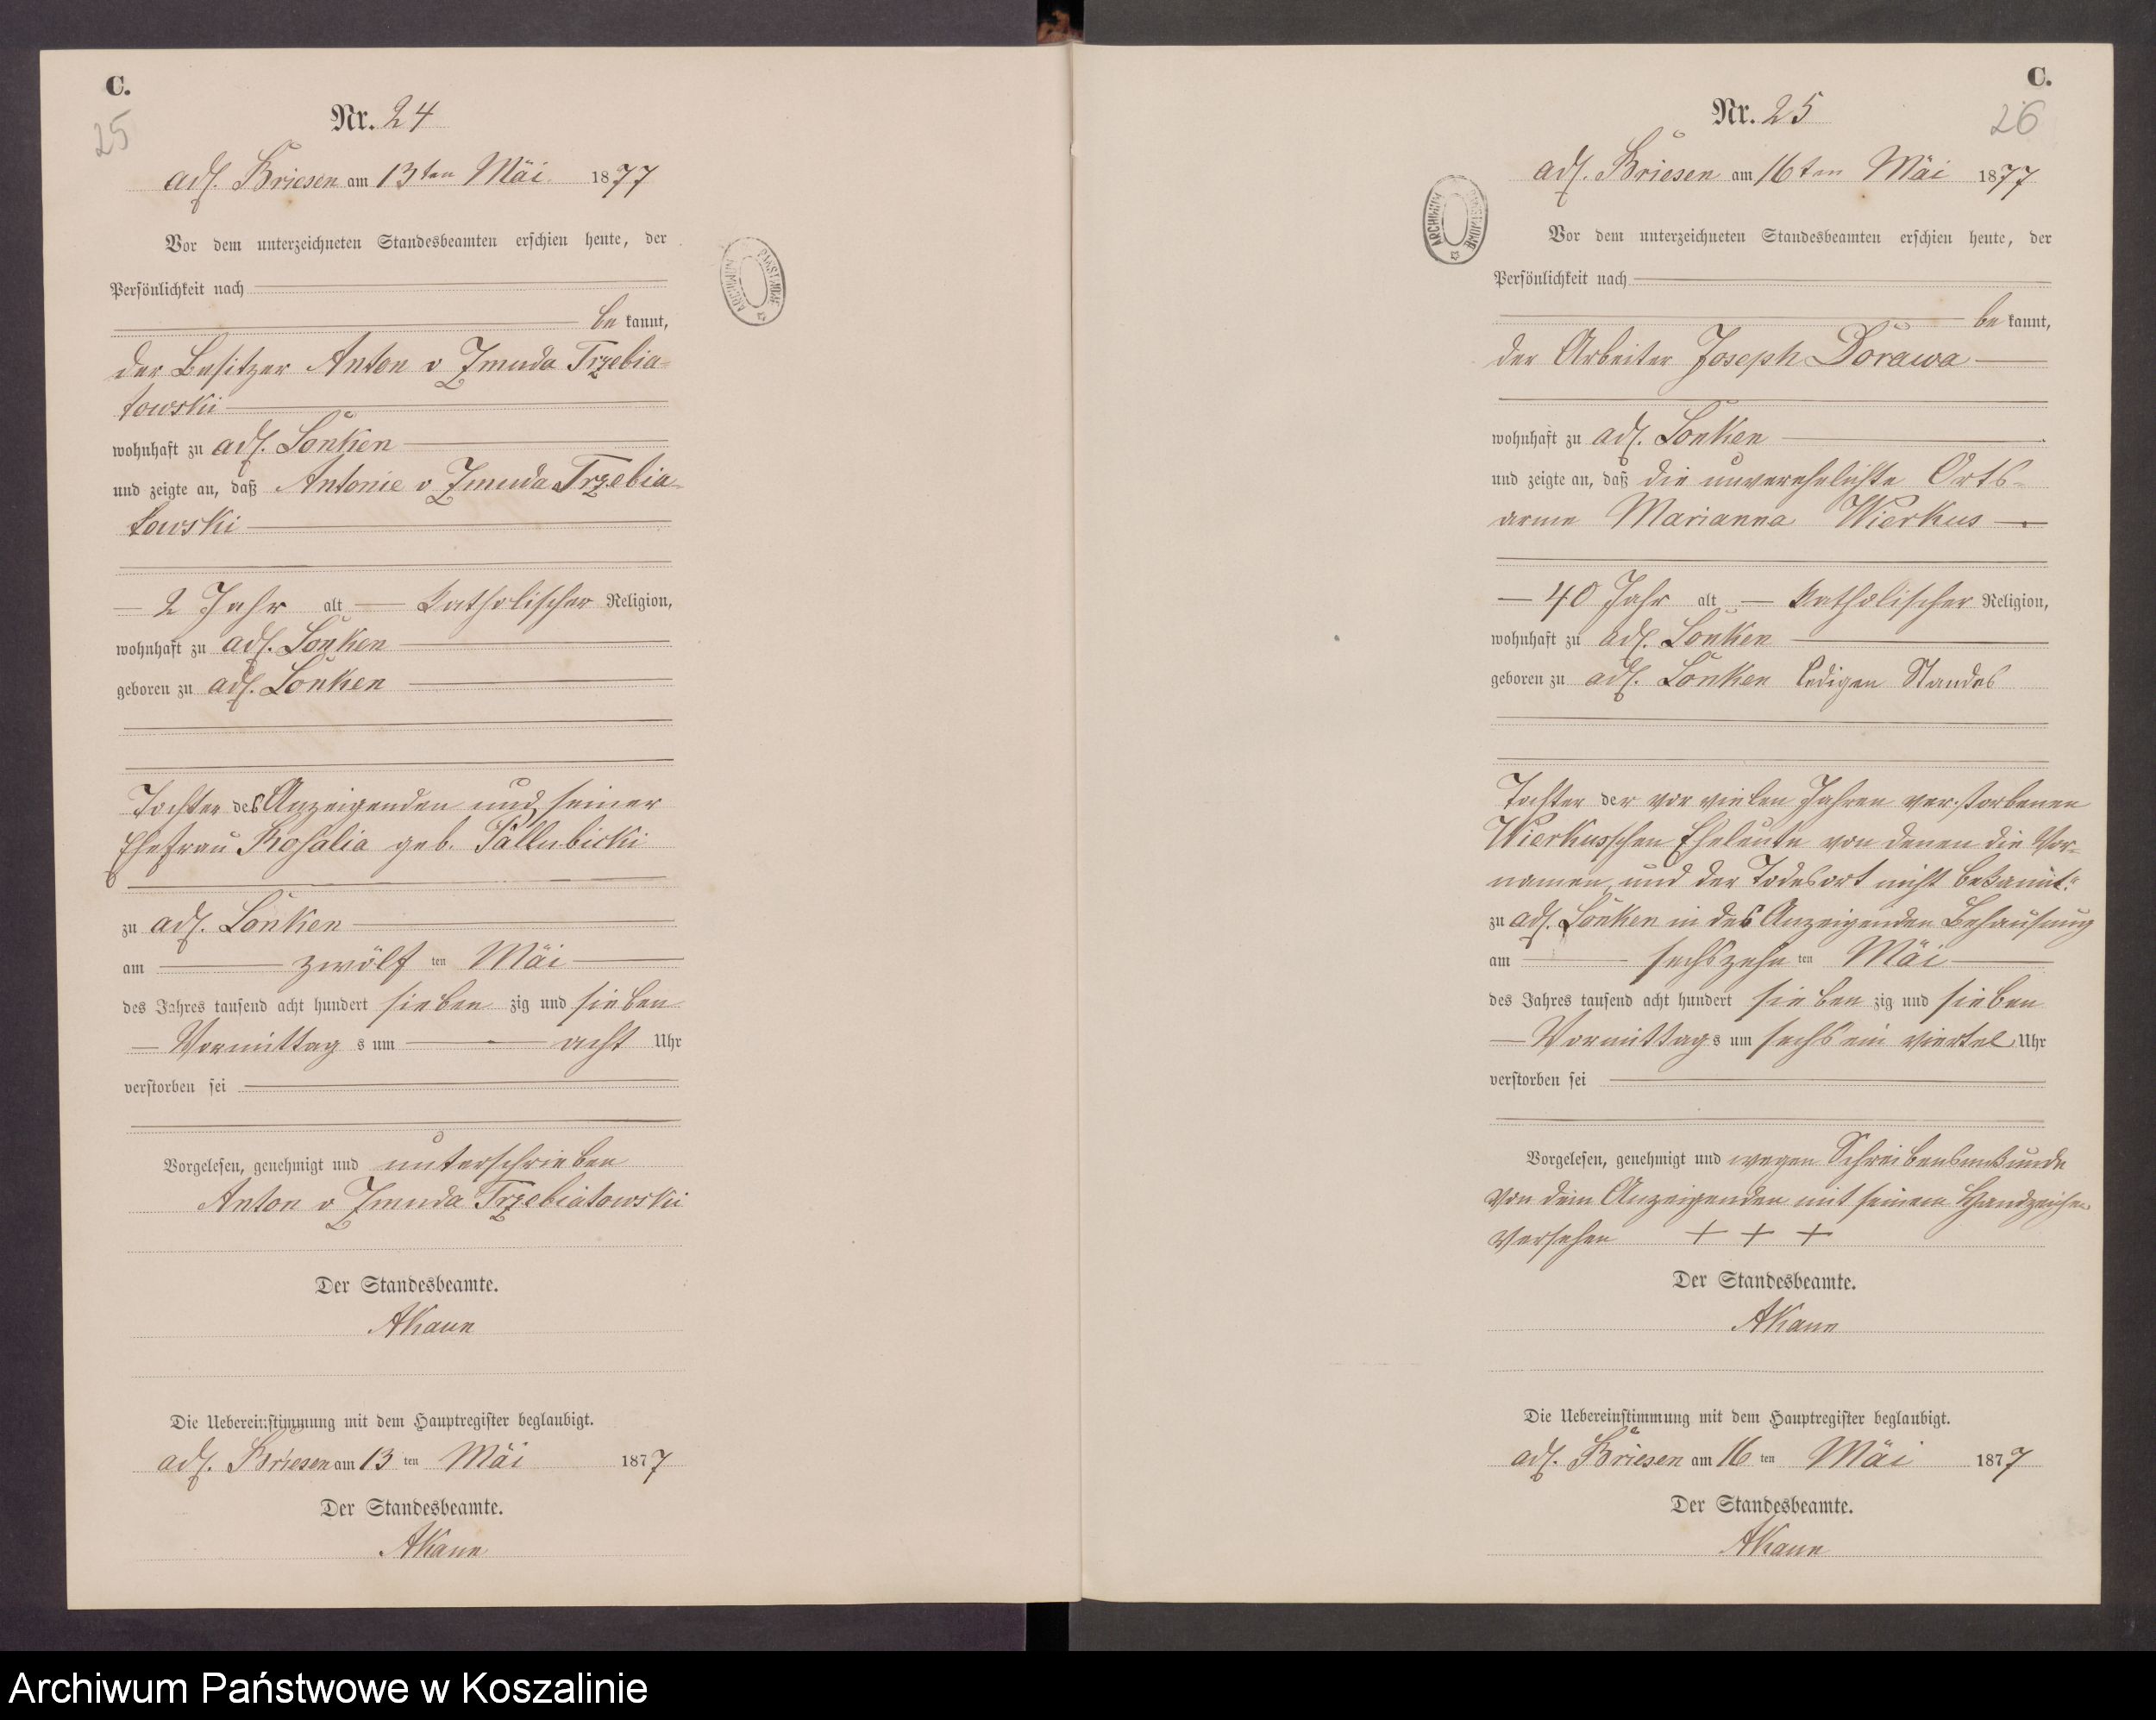 C.
25
Nr. 24
adl. Briesen am 13ten Mai 1877
Vor dem unterzeichneten Standesbeamten erschien heute, der
Persönlichkeit nach
be kannt,
der Besitzer Anton v Zmuda Trzebia-
towski
wohnhaft zu adl. Lonken
und zeigte an, daß Antonie v Zmuda Trzebia-
towski
2 Jahr alt Katholischer Religion,
wohnhaft zu adl. Lonken
geboren zu adl. Lonken
Tochter des Anzeigenden und seiner
Ehefrau Rosalia geb. Pallubicki
zu adl. Lonken
am zwölf ten Mai
des Jahres tausend acht hundert sieben zig und sieben
Vormittag s um acht Uhr
verstorben sei
Vorgelesen, genehmigt und unterschrieben
Anton v Zmuda Trzebiatowski
Der Standesbeamte.
AKaun
Die Uebereinstimmung mit dem Hauptregister beglaubigt.
adl. Briesen am 13 ten Mai 1877
Der Standesbeamte.
AKaun
ARCHIWUM PAŃSTWOWE
C.
26
Nr. 25
adl. Briesen am 16ten Mai 1877
Vor dem unterzeichneten Standesbeamten erschien heute, der
Persönlichkeit nach
be kannt,
der Arbeiter Joseph Dorawa
wohnhaft zu adl. Lonken
und zeigte an, daß die unverehelichte Orts-
arme Marianna Wierkus
40 Jahr alt Katholischer Religion,
wohnhaft zu adl. Lonken
geboren zu adl. Lonken ledigen Standes
Tochter der vor vielen Jahren verstorbenen
Wierkusschen Eheleute von denen die Vor-
namen und der Todesort nicht bekannt.
zu adl. Lonken in des Anzeigenden Behausung
am sechszehn ten Mai
des Jahres tausend acht hundert sieben zig und sieben
Vormittag s um sechs ein viertel Uhr
verstorben sei
Vorgelesen, genehmigt und wegen Schreibensunkunde
von dem Anzeigenden mit seinem Handzeichen
versehen + + +
Der Standesbeamte.
AKaun
Die Uebereinstimmung mit dem Hauptregister beglaubigt.
adl. Briesen am 16 ten Mai 1877
Der Standesbeamte.
AKaun
ARCHIWUM PAŃSTWOWE
Archiwum Państwowe w Koszalinie